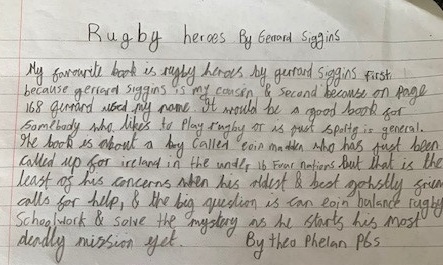 Rugby heroes By Gerrard Siggins
My favourite book is rugby heroes by gerrard siggins first
because gerrard siggins is my cousin & second because on page
168 gerrard used my name. It would be a good book for
somebody who likes to play rugby or is just sports is general.
The book is about a boy called eoin madden who has just been
called up for ireland in the under 16 Four nations But that is the
least of his concerns when his oldest & best ghostly frien
calls for help, & the big question is can eoin balance rugby
Schoolwork & solve the mystery as he starts his most
deadly mission yet. By theo Phelan P6s